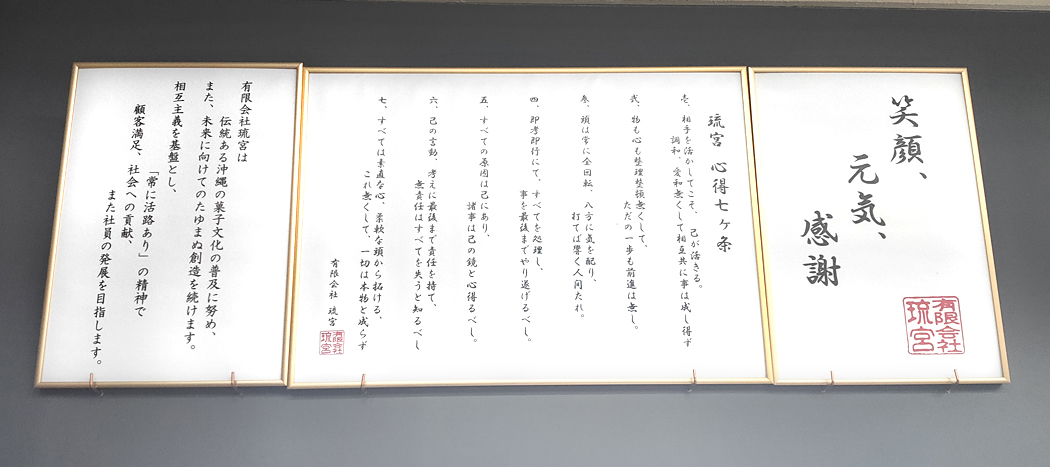 笑顔、
元気、
感謝
有限会社
琉宮
琉宮 心得七ヶ条
壱、相手を活かしてこそ、己が活きる。
調和、愛和無くして相互共に事は成し得ず
弐、物も心も整理整頓無くして、
ただの一歩も前進は無し。
参、頭は常に全回転、八方に気を配り、
打てば響く人間たれ。
四、即考即行にて、すべてを処理し、
事を最後までやり遂げるべし。
五、すべての原因は己にあり、
諸事は己の鏡と心得るべし。
六、己の言動、考えに最後まで責任を持て、
無責任はすべてを失うと知るべし
七、すべては素直な心、柔軟な頭から拓ける、
これ無くして、一切は本物と成らず
有限会社 琉宮
有限会社
琉宮
有限会社琉宮は
伝統ある沖縄の菓子文化の普及に努め、
また、未来に向けてのたゆまぬ創造を続けます。
相互主義を基盤とし、
「常に活路あり」の精神で
顧客満足、社会への貢献、
また社員の発展を目指します。